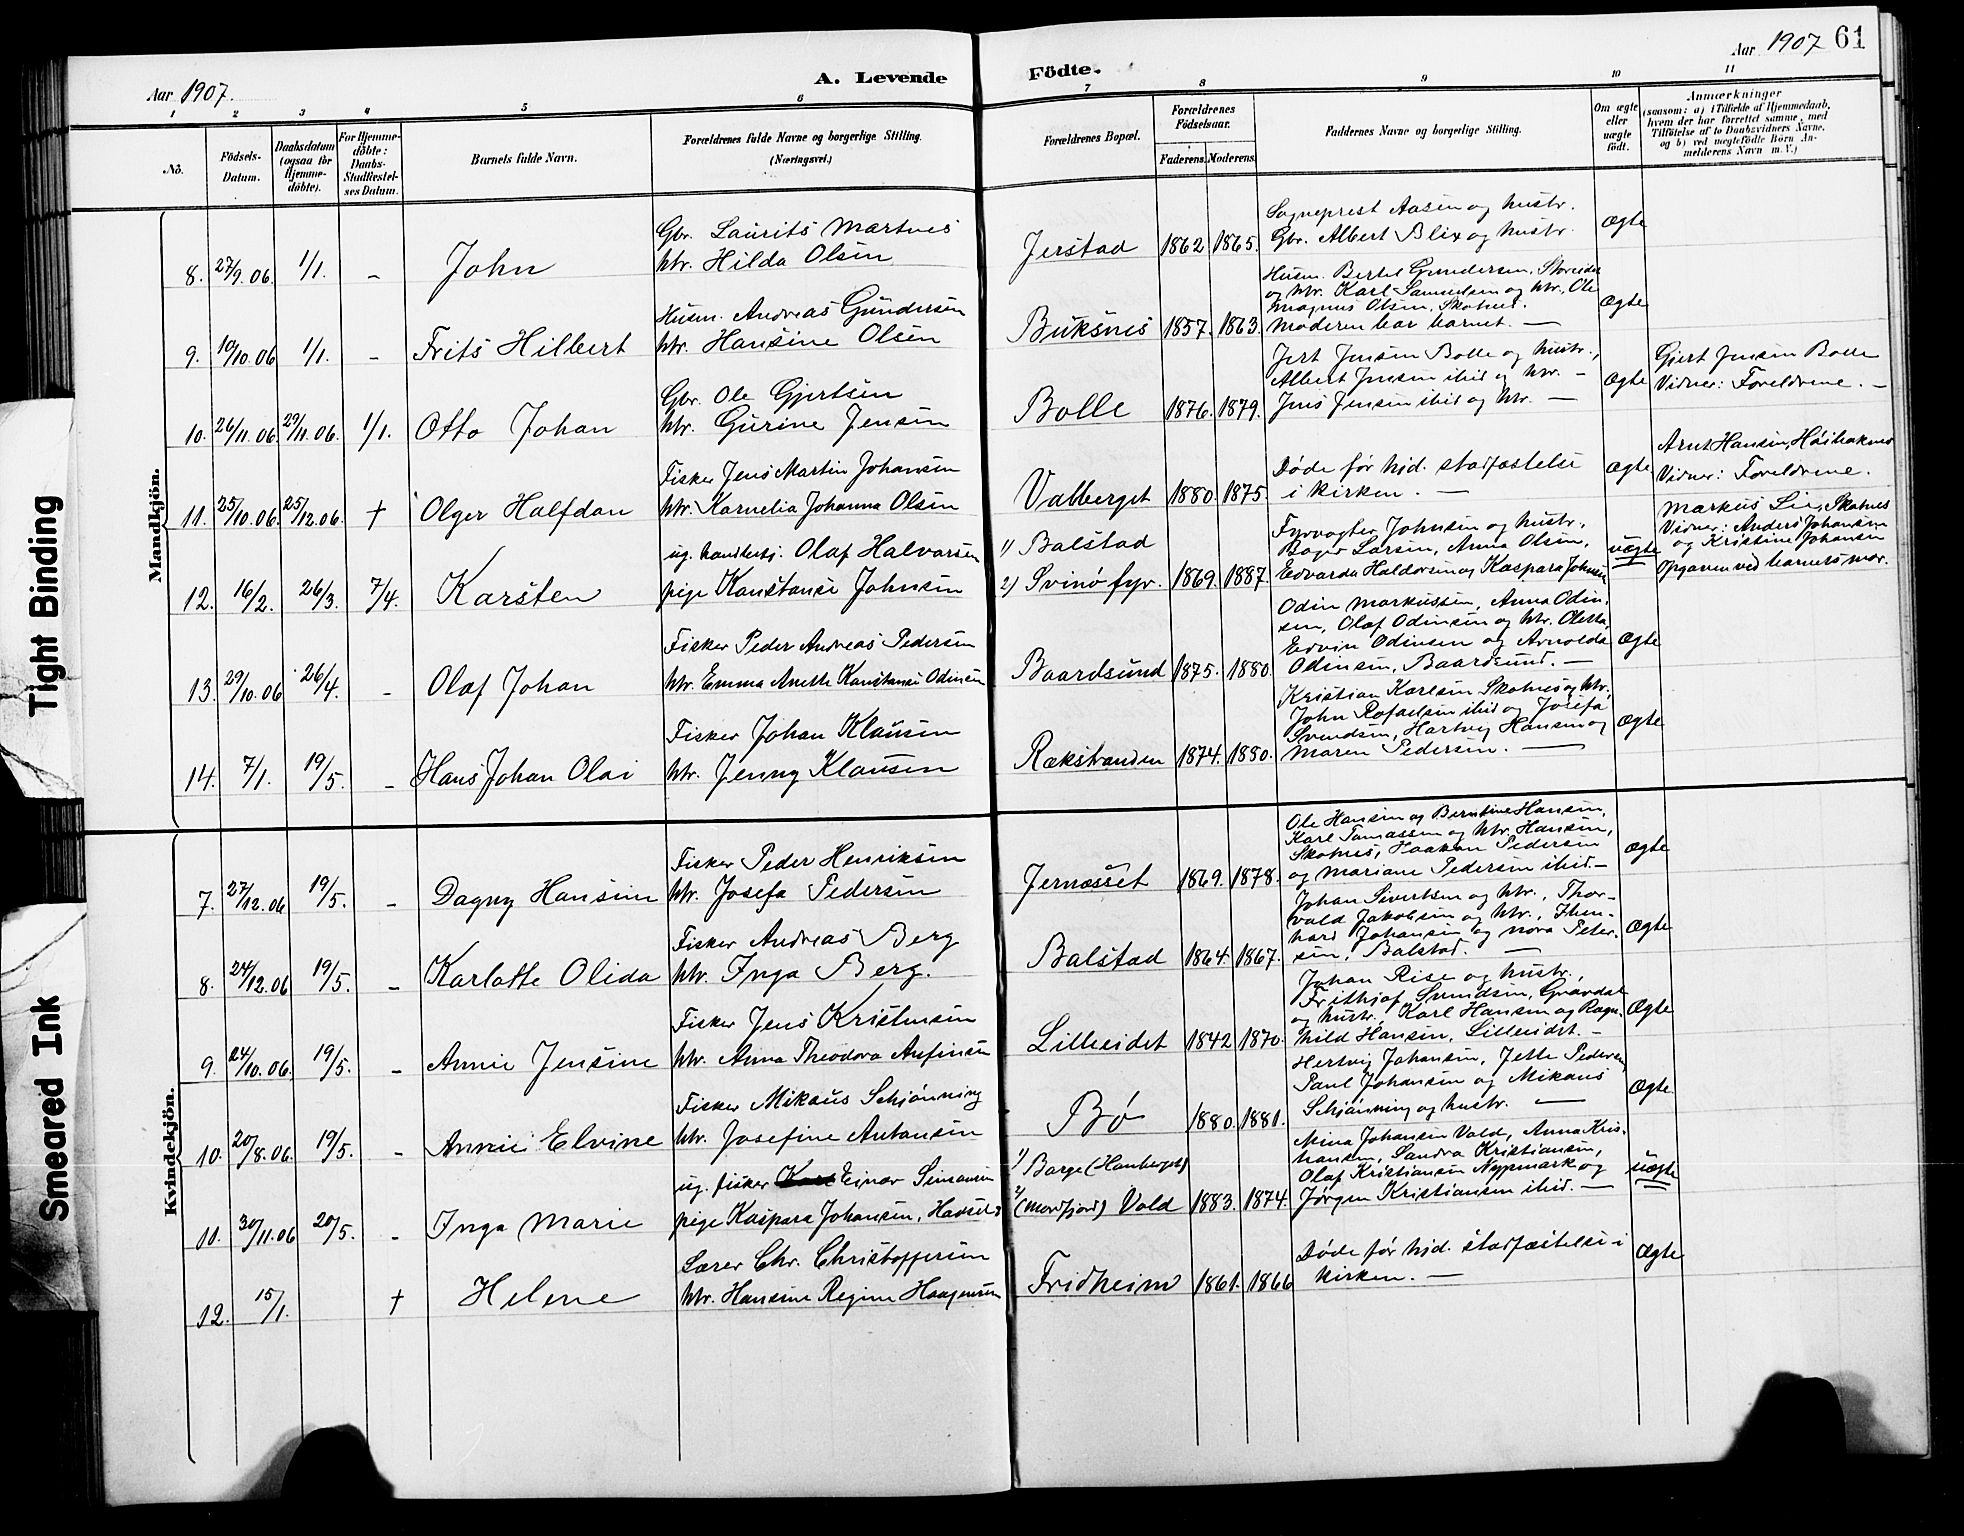 Tight Binding
Smeared Ink
Aar 1907.
A. Levende
Födte.
Aar 1907 61
1 2 3 4 5 6 7 8 9 10 11
No.
Födsels-
Datum.
Daabsdatum
(ogsaa for
Hjemme-
døbte).
For Hjemme-
døbte:
Daabs-
Stadfæstel-
ses Datum.
Barnets fulde Navn.
Forældrenes fulde Navne og borgerlige Stilling.
(Næringsvei.)
Forældrenes Bopæl.
Forældrenes
Födselsaar.
Faderens. Moderens.
Faddernes Navne og borgerlige Stilling.
Om ægte
eller
uægte
födt.
Anmærkninger
(saasom: a) i Tilfælde af Hjemmedaab,
hvem der har forrettet samme, med
Tilföielse af to Daabsvidners Navne,
og b) ved uægtefödte Börn An-
melderens Navn m. V.)
Mandkjön.
8. 27/9.06. 1/1. - John
Gbr. Laurits Martnes
htr. Hilda Olsen
Jerstad 1862. 1865.
Sogneprest Aasen og hustr.
Gbr. Albert Blix og hustr.
Ægte
9. 10/10.06 1/1. - Frits Hilbert
Husm. Andreas Gundersen
htr. Hansine Olsen
Buksnes 1857. 1863.
Husm. Bertel Gundersen, Storeidet
og htr. Karl Samuelsen og htr., Ole
Magnus Olsen, Skotnes.
Moderen bar barnet. —
Ægte
10. 26/11.06 29/11.06. 1/1. Otto Johan
Gbr. Ole Gjertsen
htr. Gurine Jensen
Bolle 1876. 1879.
Jert Jensen Bolle og hustr.,
Albert Jensen ibid og htr. -
Jens Jensen ibid og htr. —
Ægte
Gjert Jensen Bolle
Vidner: Foreldrene. -
11. 25/10.06 25/12.06. † Olger Halfdan
Fisker Jens Martin Johansen
htr. Kornelia Johanna Olsen
Valberget 1880. 1875.
Døde før hjd. stadfæstelse
i kirken. —
Ægte
Arnt Hansen,
Vidner: Foreldrene.
12. 16/2. 26/3. 7/4. Karsten
ug. handlesbj. Olaf Halvorsen
pige Konstanse Johnsen
1) Balstad
2) Svinø fyr. 1869. 1887.
Fyrvogter Johnsen og hustr.,
Roger Larsen, Anna Olsen,
Edvarda Haldorsen og Kaspara Johnsen
uægte
Markus Lie, Skotnes
Vidner: Anders Johansen
og Kristine Johansen
Opgaven ved barnets mor.
13. 29/10.06 26/4. - Olaf Johan
Fisker Peder Andreas Pedersen
htr. Emma Anette Konstanse Odinsen
Baardsund 1875. 1880.
Odin Markussen, Anna Odin-
sen, Olaf Odinsen og htr. Oletta,
Edvin Odinsen og Arnolda
Odinsen, Baardsund. —
Ægte
14. 7/1. 19/5. - Hans Johan Olai
Fisker Johan Klausen
htr. Jenny Klausen
Rækstranden 1874. 1880.
Kristian Karlsen Skotnes og htr.,
John Rafaelsen ibid og Josefa
Svendsen, Hartvig Hansen og
Maren Pedersen. —
Ægte
Kvindekjön.
7. 27/12.06 19/5. - Dagny Hansine
Fisker Peder Henriksen
htr. Josefa Pedersen
Jernæsset 1869. 1878.
Ole Hansen og Berntine Hansen,
Karl Tomassen og htr. Hansen,
Skotnes, Haakon Pedersen
og Mariane Pedersen ibid.-
Ægte
8. 24/12.06 19/5. - Karlotte Olida
Fisker Andreas Berg
htr. Inga Berg.
Balstad 1864. 1867.
Johan Sivertsen og htr., Thor-
vald Jakobsen og htr.,
Johansen og Nora Peter-
sen, Balstad. —
Ægte
9. 24/10.06. 19/5. - Annie Jensine
Fisker Jens Kristensen
htr. Anna Theodora Anfinsen
Lilleeidet 1842 1870.
Johan Rise og hustr.,
Frithjof Svendsen, Gravdal
og hustr., Karl Hansen og Ragn-
hild Hansen, Lilleeidet. -
Ægte
10. 20/8.06. 19/5. - Annie Elvine
Fisker Mikaus Schjønning
htr. Josefine Antonsen
Bø 1880. 1881.
Hertvig Johansen, Jette Pedersen
Paul Johansen og Mikaus
Schjønning og hustr. —
Ægte
11. 30/11.06 20/5. - Inga Marie
ug. fisker Einar Simonsen
pige Kaspara Johansen, Hadsel
1) Borge
2) Vold 1883. 1874.
Mina Johansen Vold, Anna Kris-
tiansen, Sandra Kristiansen,
Olaf Kristiansen Nypmark og
Jørgen Kristiansen ibid. —
uægte
12. 15/1. † Helene
Lærer Chr. Christoffersen
htr. Hansine Regine Haagensen
Fridheim 1861. 1866
Døde før hjd. stadfæstelse i
kirken. —
Ægte